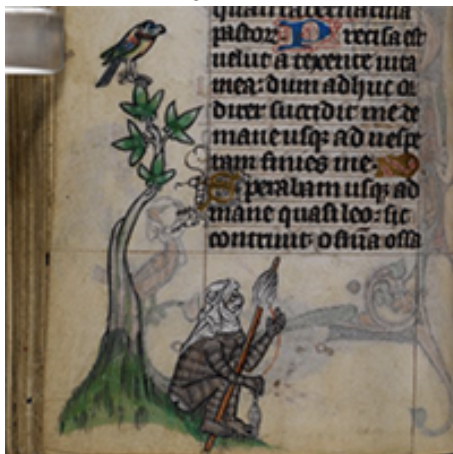 pastorꝝ Precisa est
uelut a texente uita
mea: dum adhuc or
direr succidit me de
mane usqꝫ ad uespe
ram finies me.
Sperabam usqꝫ ad
mane quasi leo: sic
contriuit om̄ia ossa